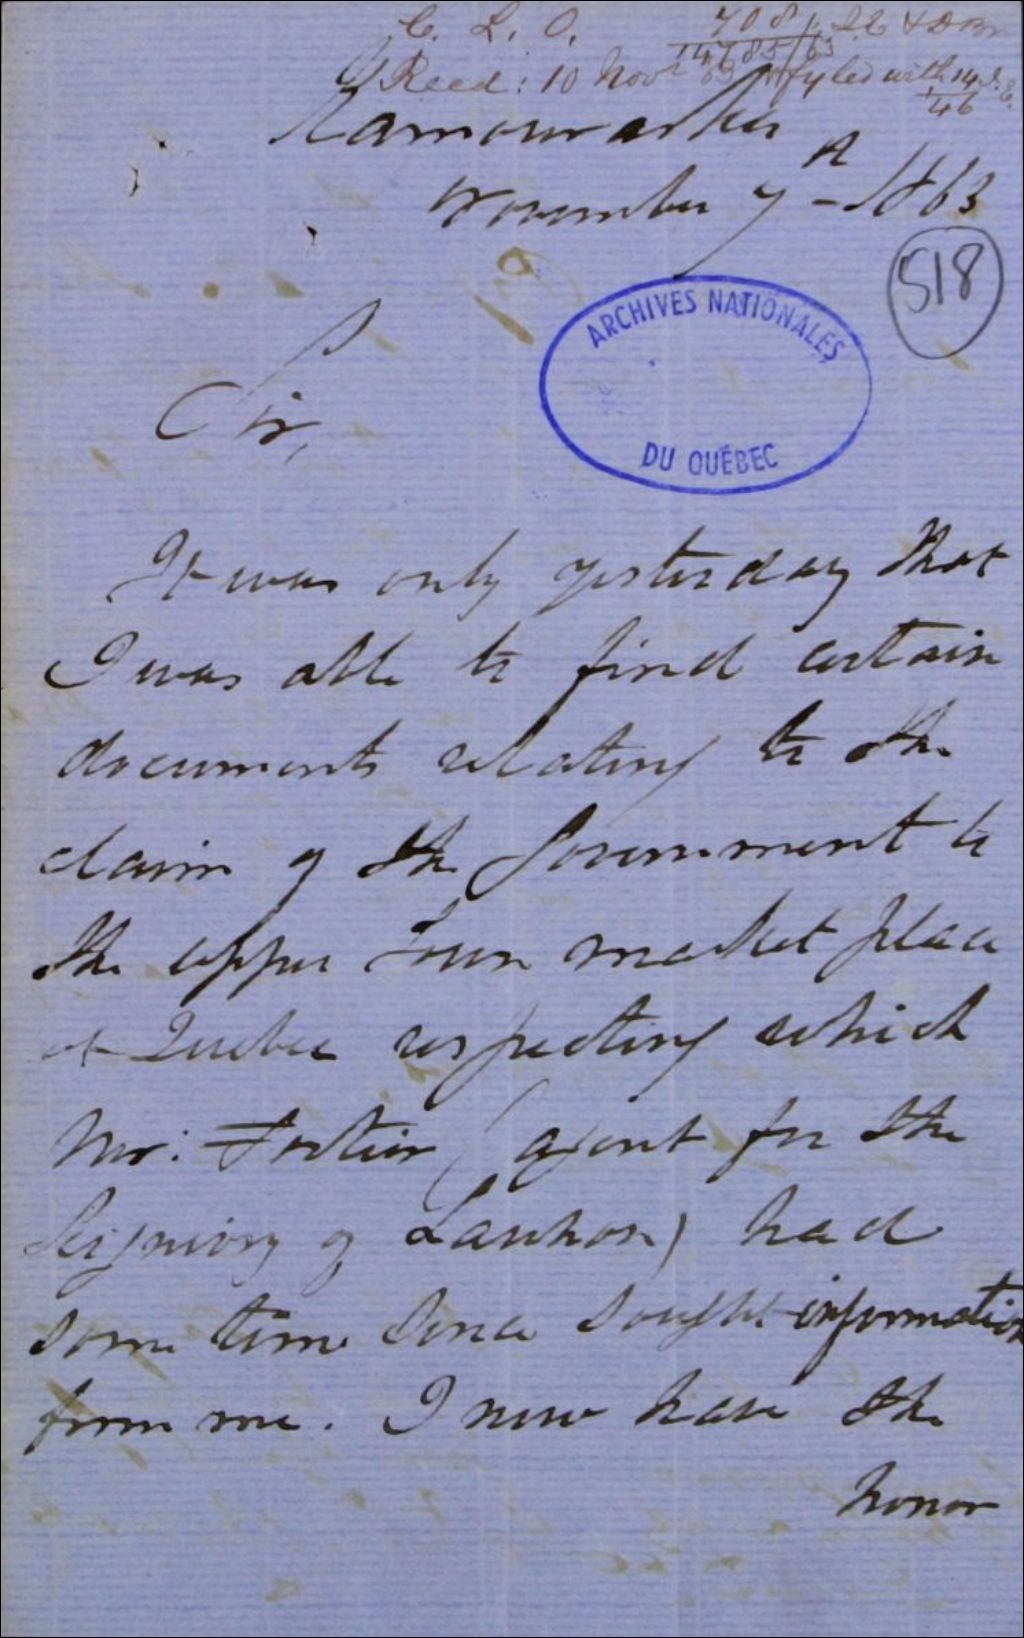 C. L. O. 708
14785/63
Recd: 10 Novr 63 fyled with 14
46
Kamouraska
November 7th 1863
518
ARCHIVES NATIONALES
DU QUÉBEC
Sir,
It was only yesterday that
I was able to find certain
documents relating to the
claim of the Government to
the upper Town market place
at Quebec respecting which
Mr: Fortier (agent for the
Seigniory of Lauzon) had
some time since sought information
from me. I now have the
honor